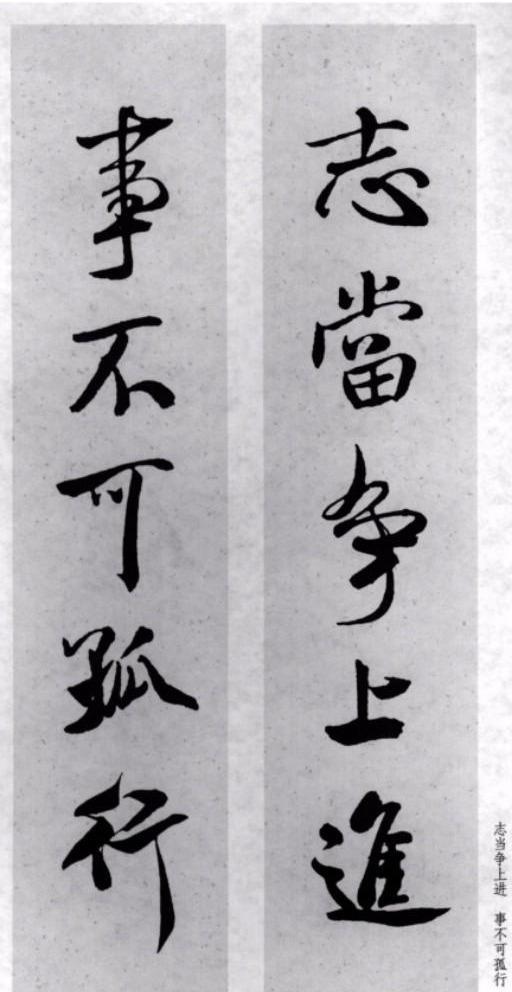 志當争上進
事不可孤行
志当争上进　事不可孤行